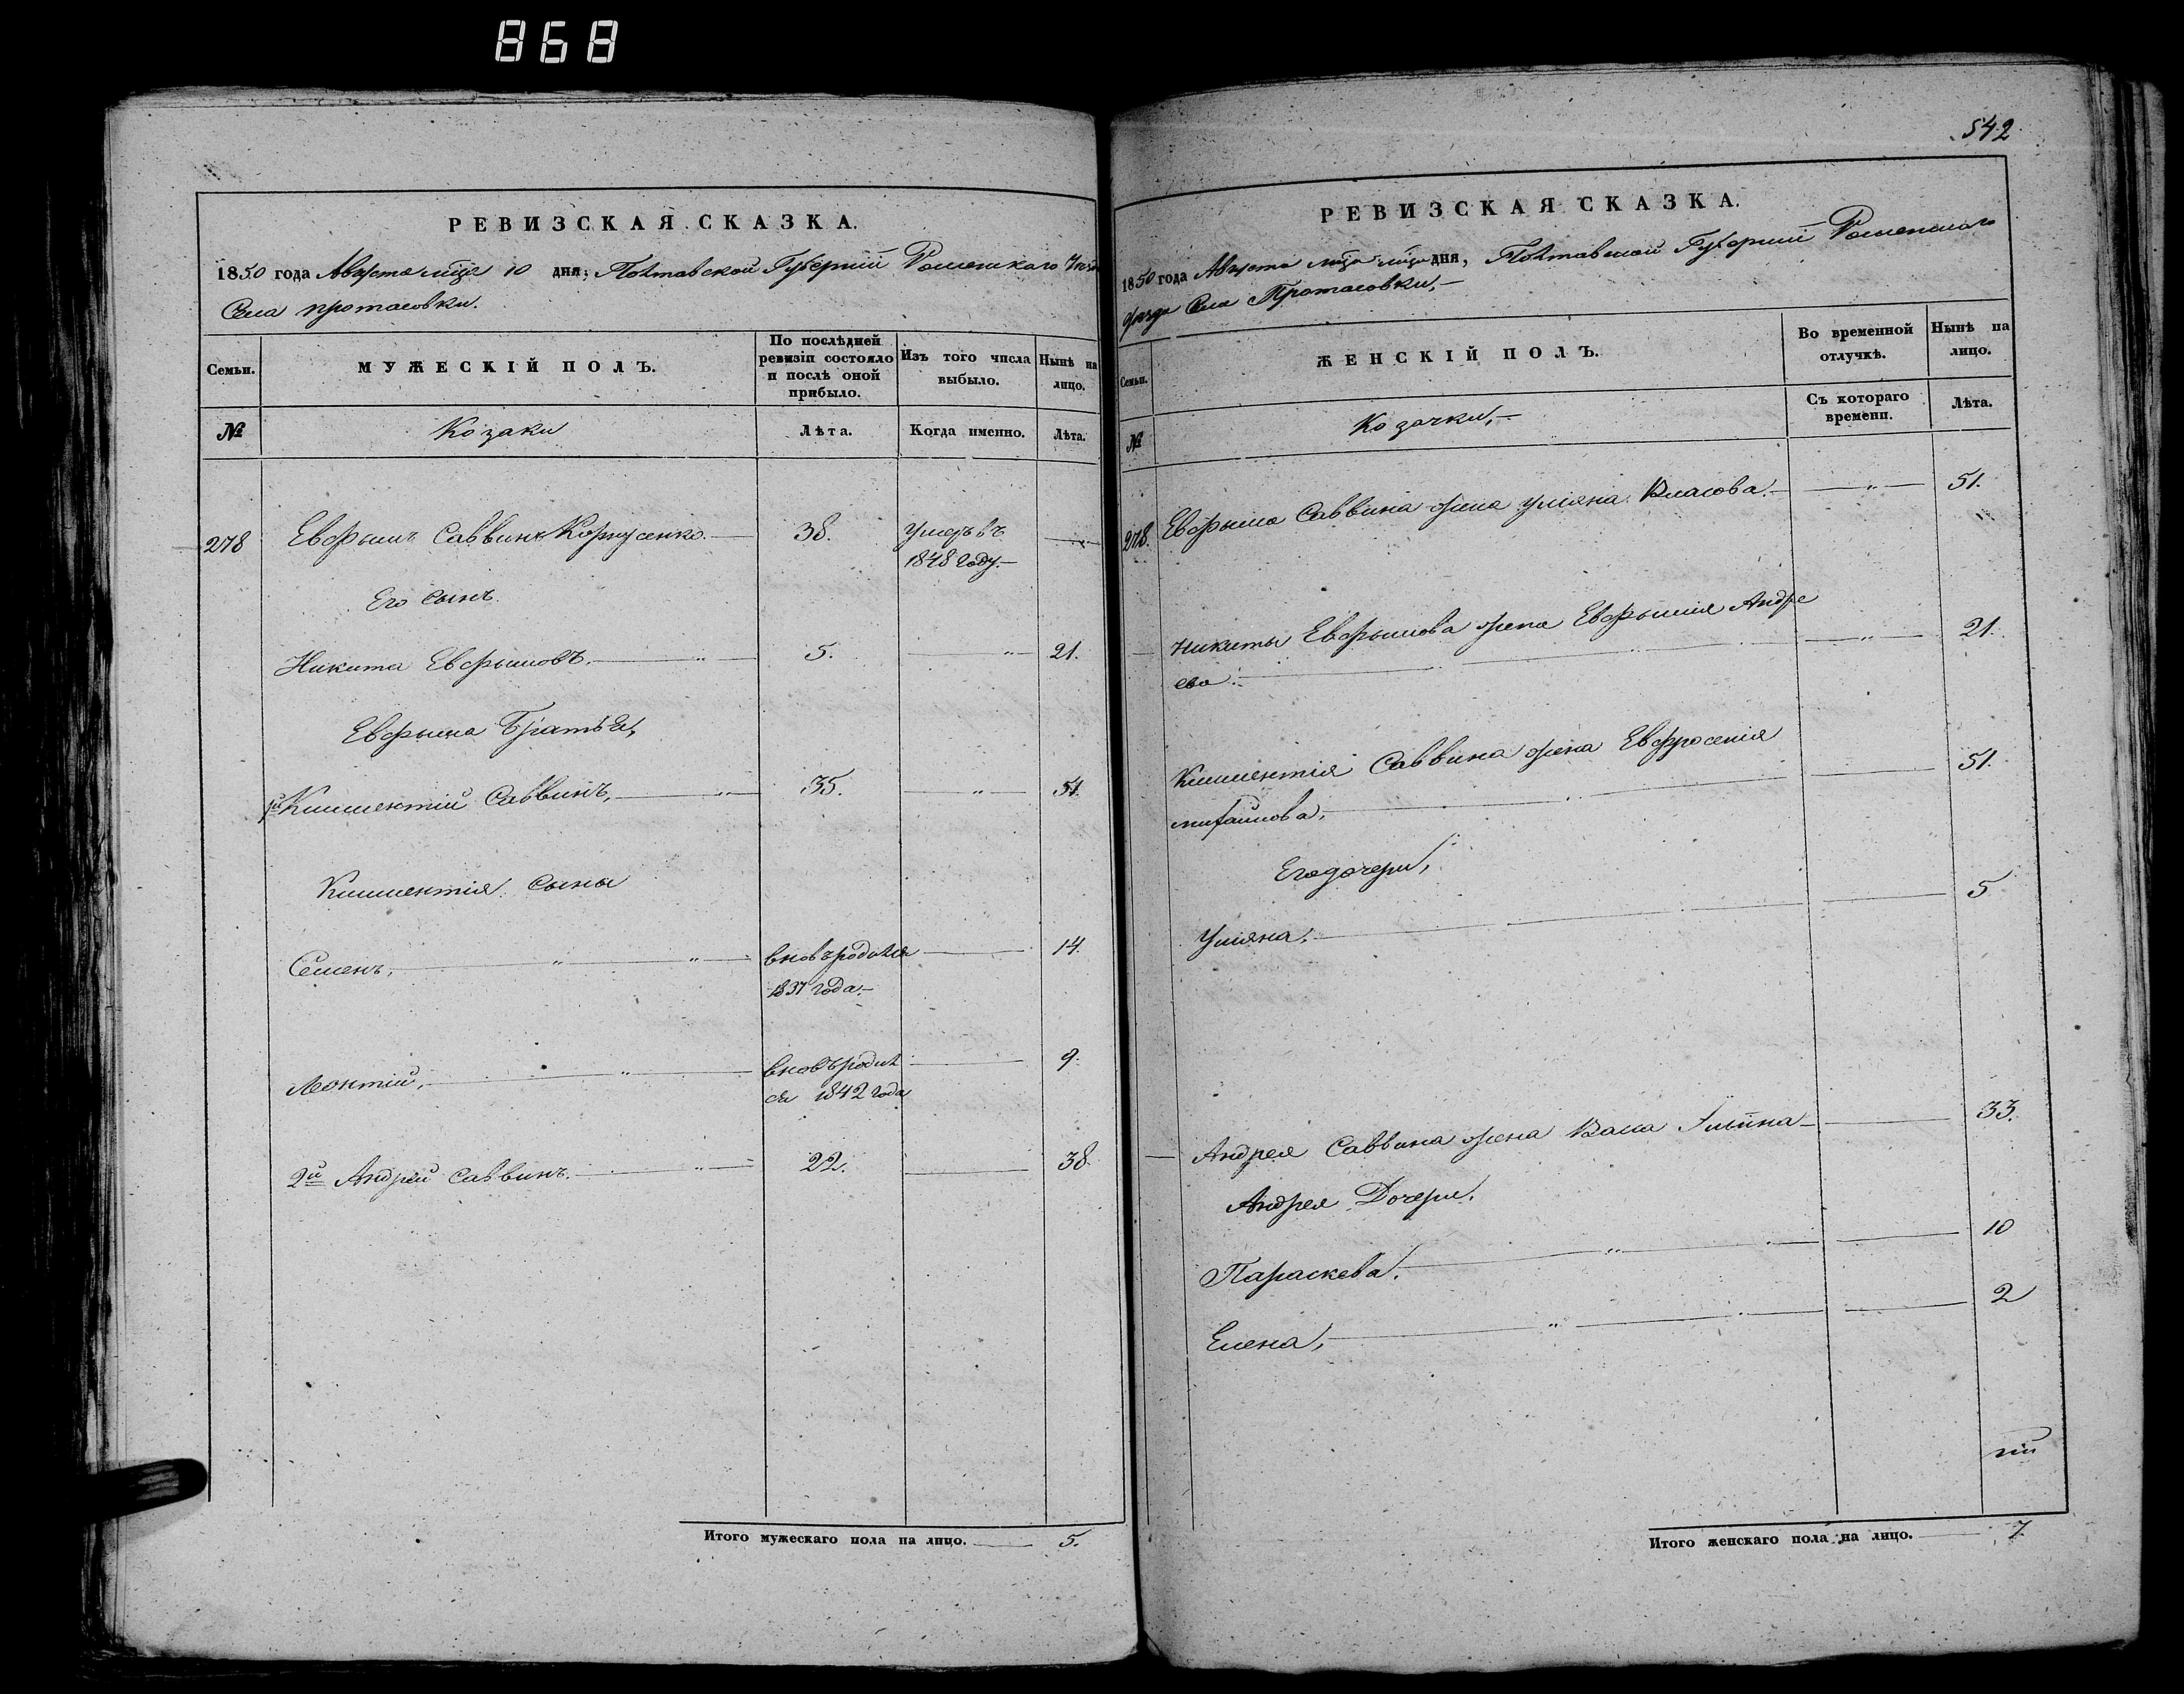 868
РЕВИЗСКАЯ СКАЗКА.
1850 года Августа мця 10 дня, Полтавской Губерніи Роменскаго Уезда
Села протасовки.
Семьи.
МУЖЕСКІЙ ПОЛЪ.
По послѣдней ревизіи состояло и послѣ оной прибыло.
Изъ того числа выбыло.
Нынѣ на лицо.
№
Козаки
Лѣта.
Когда именно.
Лѣта.
278 Евфымъ Саввинъ Корнусенко. 38. Умеръ въ
1848 году.
Его сынъ
Никита Евфымовъ. 5. 21.
Евфыма Братья,
1й Климентій Саввинъ, 35. 51.
Климентія Сыны
Семенъ, вновъ родился 14.
1837 года.
Леонтій, вновъ родил 9.
ся 1842 года
2й Андрей Саввинъ. 22. 38.
Итого мужескаго пола на лицо. 5.
542
РЕВИЗСКАЯ СКАЗКА.
1850 года Августа мця дня, Полтавской Губерніи Роменскаго
уезда Села Протасовки,
Семьи.
ЖЕНСКІЙ ПОЛЪ.
Во временной отлучкѣ.
Нынѣ на лицо.
№
Козачки,
Съ котораго времени.
Лѣта.
278. Евфыма Саввина жена Уліяна Власова. 51.
Никиты Евфымова жена Евфымія Андре 21.
ева.
Климентія Саввина жена Евфросенія 51.
михайлова,
Его дочери,
Уліяна, 5
Андрея Саввина жена Васса 33.
Андрея Дочери,
Параскева. 10
Елена, 2
Итого женскаго пола на лицо. 7